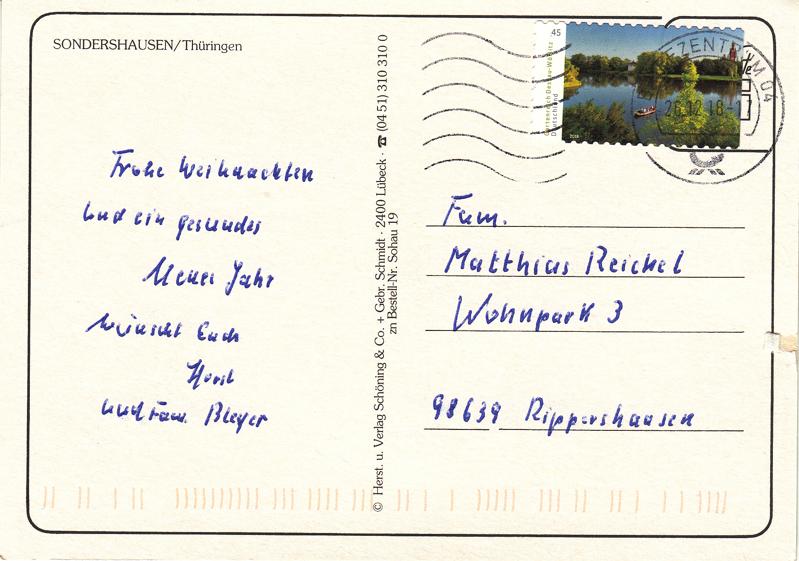 SONDERSHAUSEN/Thüringen
Frohe Weihnachten
und ein gesundes
Neues Jahr
wünscht Euch
Horst
und Fam. Bleyer
© Herst. u. Verlag Schöning & Co. + Gebr. Schmidt · 2400 Lübeck · ☎ (04 51) 310 310 0
zn Bestell-Nr. Sohau 19
45
Gartenreich Dessau-Wörlitz
Deutschland
2018
ZENTRUM 04
12.18-17
Fam.
Matthias Reichel
Wohnpark 3
98639 Rippershausen